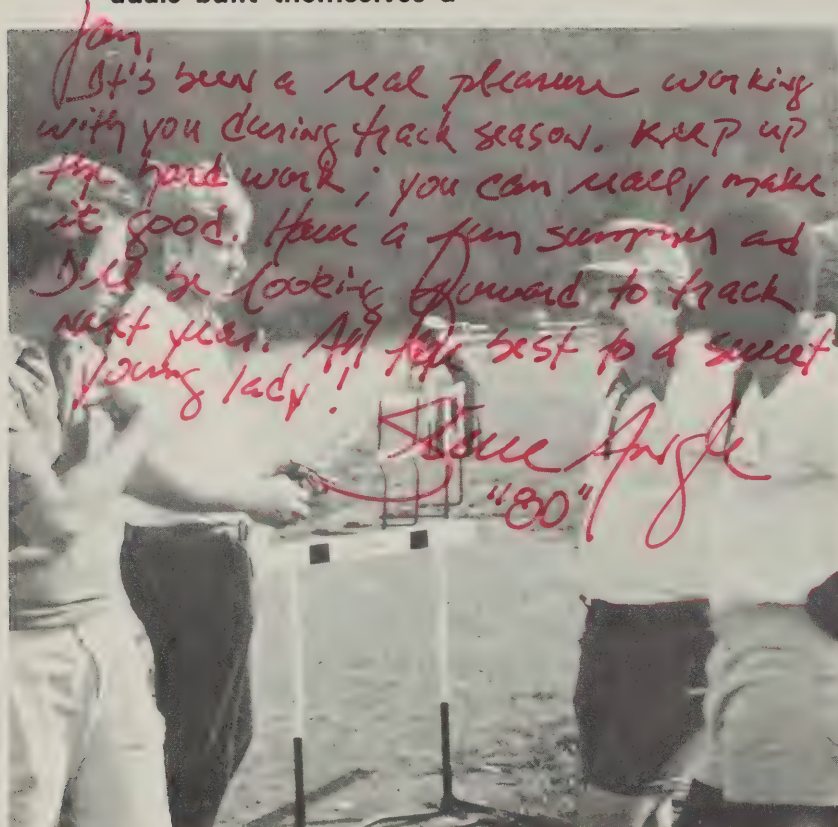 built themselves a
Jan,
It's been a real pleasure working
with you during track season. Keep up
the hard work; you can really make
it good. Have a fun summer and
I'll be looking forward to track
next year. All the best to a sweet
young lady!
Steve Angle
"80"